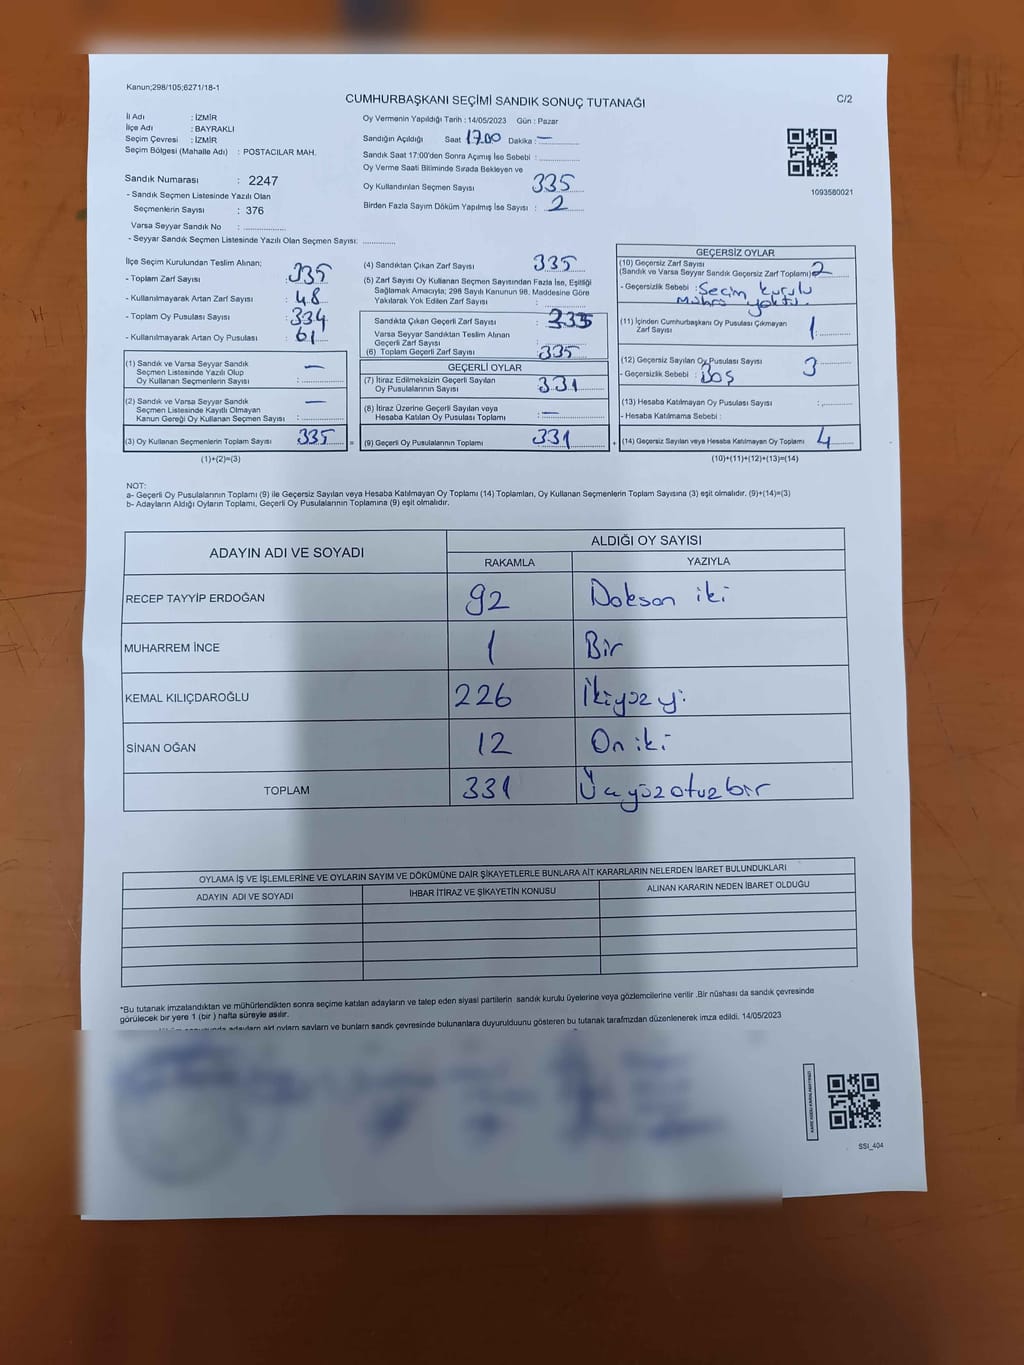 Kanun;298/105;6271/18-1
CUMHURBAŞKANI SEÇİMİ SANDIK SONUÇ TUTANAĞI
C/2
İl Adı : İZMİR
İlçe Adı : BAYRAKLI
Seçim Çevresi : İZMİR
Seçim Bölgesi (Mahalle Adı) : POSTACILAR MAH.
Sandık Numarası : 2247
- Sandık Seçmen Listesinde Yazılı Olan
Seçmenlerin Sayısı : 376
Varsa Seyyar Sandık No :
- Seyyar Sandık Seçmen Listesinde Yazılı Olan Seçmen Sayısı:
Oy Vermenin Yapıldığı Tarih : 14/05/2023 Gün : Pazar
Sandığın Açıldığı Saat 17.00 Dakika : —
Sandık Saat 17:00'den Sonra Açımış İse Sebebi :
Oy Verme Saati Bitiminde Sırada Bekleyen ve
Oy Kullandırılan Seçmen Sayısı 335
Birden Fazla Sayım Döküm Yapılmış İse Sayısı : 2
1093580021
İlçe Seçim Kurulundan Teslim Alınan;
- Toplam Zarf Sayısı : 335
- Kullanılmayarak Artan Zarf Sayısı : 48
- Toplam Oy Pusulası Sayısı : 334
- Kullanılmayarak Artan Oy Pusulası : 61
(1) Sandık ve Varsa Seyyar Sandık
Seçmen Listesinde Yazılı Olup
Oy Kullanan Seçmenlerin Sayısı : —
(2) Sandık ve Varsa Seyyar Sandık
Seçmen Listesinde Kayıtlı Olmayan
Kanun Gereği Oy Kullanan Seçmen Sayısı : —
(3) Oy Kullanan Seçmenlerin Toplam Sayısı 335 =
(1)+(2)=(3)
(4) Sandıktan Çıkan Zarf Sayısı 335
(5) Zarf Sayısı Oy Kullanan Seçmen Sayısından Fazla İse, Eşitliği
Sağlamak Amacıyla; 298 Sayılı Kanunun 98. Maddesine Göre
Yakılarak Yok Edilen Zarf Sayısı :
Sandıkta Çıkan Geçerli Zarf Sayısı :
Varsa Seyyar Sandıktan Teslim Alınan
Geçerli Zarf Sayısı :
(6) Toplam Geçerli Zarf Sayısı : 335
GEÇERLİ OYLAR
(7) İtiraz Edilmeksizin Geçerli Sayılan
Oy Pusulalarının Sayısı : 331
(8) İtiraz Üzerine Geçerli Sayılan veya
Hesaba Katılan Oy Pusulası Toplamı : —
(9) Geçerli Oy Pusulalarının Toplamı : 331 +
GEÇERSİZ OYLAR
(10) Geçersiz Zarf Sayısı
(Sandık ve Varsa Seyyar Sandık Geçersiz Zarf Toplamı) 2
- Geçersizlik Sebebi : Seçim kurulu
mührü yoktu.
(11) İçinden Cumhurbaşkanı Oy Pusulası Çıkmayan
Zarf Sayısı 1
(12) Geçersiz Sayılan Oy Pusulası Sayısı : 3
- Geçersizlik Sebebi : Boş
(13) Hesaba Katılmayan Oy Pusulası Sayısı :
- Hesaba Katılmama Sebebi :
(14) Geçersiz Sayılan veya Hesaba Katılmayan Oy Toplamı : 4
(10)+(11)+(12)+(13)=(14)
NOT:
a- Geçerli Oy Pusulalarının Toplamı (9) ile Geçersiz Sayılan veya Hesaba Katılmayan Oy Toplamı (14) Toplamları, Oy Kullanan Seçmenlerin Toplam Sayısına (3) eşit olmalıdır. (9)+(14)=(3)
b- Adayların Aldığı Oyların Toplamı, Geçerli Oy Pusulalarının Toplamına (9) eşit olmalıdır.
ADAYIN ADI VE SOYADI ALDIĞI OY SAYISI
RAKAMLA YAZIYLA
RECEP TAYYİP ERDOĞAN 92 Doksan iki
MUHARREM İNCE 1 Bir
KEMAL KILIÇDAROĞLU 226 İkiyüz yi
SİNAN OĞAN 12 On iki
TOPLAM 331 Üçyüzotuzbir
OYLAMA İŞ VE İŞLEMLERİNE VE OYLARIN SAYIM VE DÖKÜMÜNE DAİR ŞİKAYETLERLE BUNLARA AİT KARARLARIN NELERDEN İBARET BULUNDUKLARI
ADAYIN ADI VE SOYADI İHBAR İTİRAZ VE ŞİKAYETİN KONUSU ALINAN KARARIN NEDEN İBARET OLDUĞU
*Bu tutanak imzalandıktan ve mühürlendikten sonra seçime katılan adayların ve talep eden siyasi partilerin sandık kurulu üyelerine veya gözlemcilerine verilir .Bir nüshası da sandık çevresinde
görülecek bir yere 1 (bir ) hafta süreyle asılır.
bu tutanak tarafımızdan düzenlenerek imza edildi. 14/05/2023
SSI_404